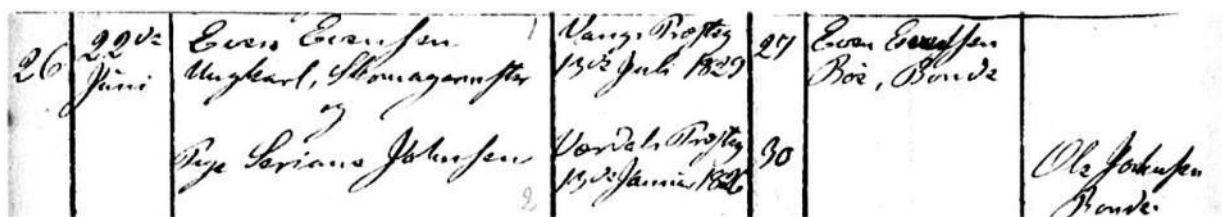 26
22de
Juni
Even Evensen
Ungkarl, Skomagermester
og
Pige Seriane Johnsen
Vangs Præsteg
13de Juli 1829
Værdals Præsteg
13de Januar 1826
27
30
Even Evensen
Böe, Bonde
Ole Johnsen
Bonde
2